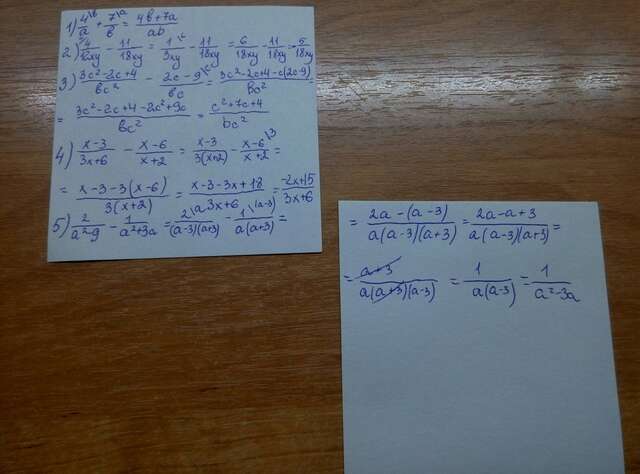 1) 4\в/a + 7\a/в = 4в+7a/aв
2) 4/12xy - 11/18xy = 1\6/3xy - 11/18xy = 6/18xy - 11/18xy = -5/18xy
3) 3c²-2c+4/вc² - 2c-9\c/вc = 3c²-2c+4-c(2c-9)/вc² =
= 3c²-2c+4-2c²+9c/вc² = c²+7c+4/вc²
4) x-3/3x+6 - x-6/x+2 = x-3/3(x+2) - x-6\3/x+2 =
= x-3-3(x-6)/3(x+2) = x-3-3x+18/3x+6 = -2x+15/3x+6
5) 2/a²-9 - 1/a²+3a = 2\a/(a-3)(a+3) - 1\(a-3)/a(a+3) =
= 2a-(a-3)/a(a-3)(a+3) = 2a-a+3/a(a-3)(a+3) =
= a+3/a(a+3)(a-3) = 1/a(a-3) = 1/a²-3a